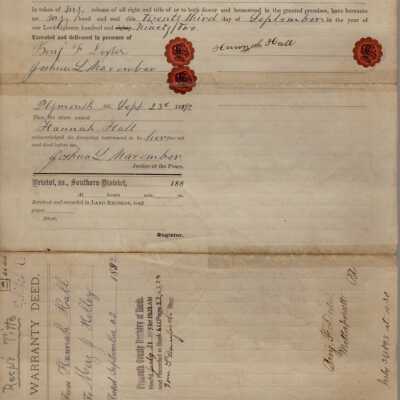 in token of my release of all right and title of or to both dower and homestead in the granted premises, have hereunto
set my hand and seal this Twenty third day of September in the year of
our Lord eighteen hundred and eighty Ninety two
Executed and delivered in presence of
Benj F Dexter
Joshua L Macomber
Hannah Hall
Plymouth ss Sept 23d 1892
Then the above named
Hannah Hall
acknowledged the foregoing instrument to be her free act
and deed before me.
Joshua L Macomber
Justice of the Peace.
Bristol, ss., Southern District, 188
At hours min.
Received and recorded in LAND RECORDS,
pages
Attest,
Register.
WARRANTY DEED.
From Hannah Hall
To Benj J Kelley
Dated September 23 1892
Plymouth County Registry of Deeds.
Benj. F. Dexter
Mattapoisett